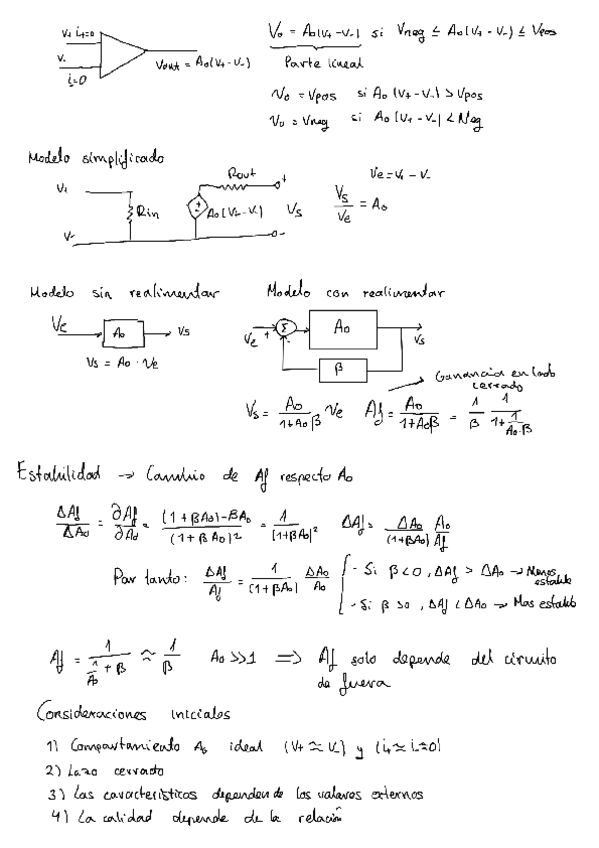 V+ i+=0
V-
i-=0
Vout = A₀(V+ - V-)
V₀ = A₀(V+ - V-) si Vneg ≤ A₀(V+ - V-) ≤ Vpos
Parte lineal
V₀ = Vpos si A₀(V+ - V-) > Vpos
V₀ = Vneg si A₀(V+ - V-) < Vneg
Modelo simplificado
V+
V-
Rin
Rout
A₀(V+ - V-)
+
Vs
-
Ve = V+ - V-
Vs/Ve = A₀
Modelo sin realimentar
Modelo con realimentar
Ve A₀ Vs
Vs = A₀ · Ve
Ve + Σ A₀ Vs
β
Ganancia en lazo
cerrado
Vs = A₀/(1+A₀β) Ve Af = A₀/(1+A₀β) = 1/β 1/(1+1/(A₀·β))
Estabilidad → Cambio de Af respecto A₀
ΔAf/ΔA₀ = ∂Af/∂A₀ = ((1+βA₀)-βA₀)/(1+βA₀)² = 1/(1+βA₀)² ΔAf = ΔA₀/(1+βA₀) A₀/Af
Por tanto: ΔAf/Af = 1/(1+βA₀) ΔA₀/A₀
- Si β<0, ΔAf > ΔA₀ → Menos
estable
- Si β>0, ΔAf < ΔA₀ → Mas estable
Af = 1/(1/A₀ + β) ≈ 1/β A₀>>1 ⇒ Af solo depende del circuito
de fuera
Consideraciones iniciales
1) Comportamiento A₀ ideal (V+ ≈ V-) y (i+ ≈ i- = 0)
2) Lazo cerrado
3) Las caracteristicas dependen de los valores externos
4) La calidad depende de la relación